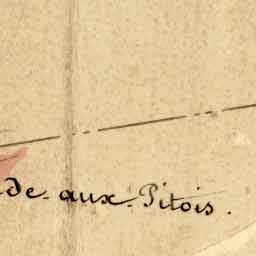 de aux Pitois.